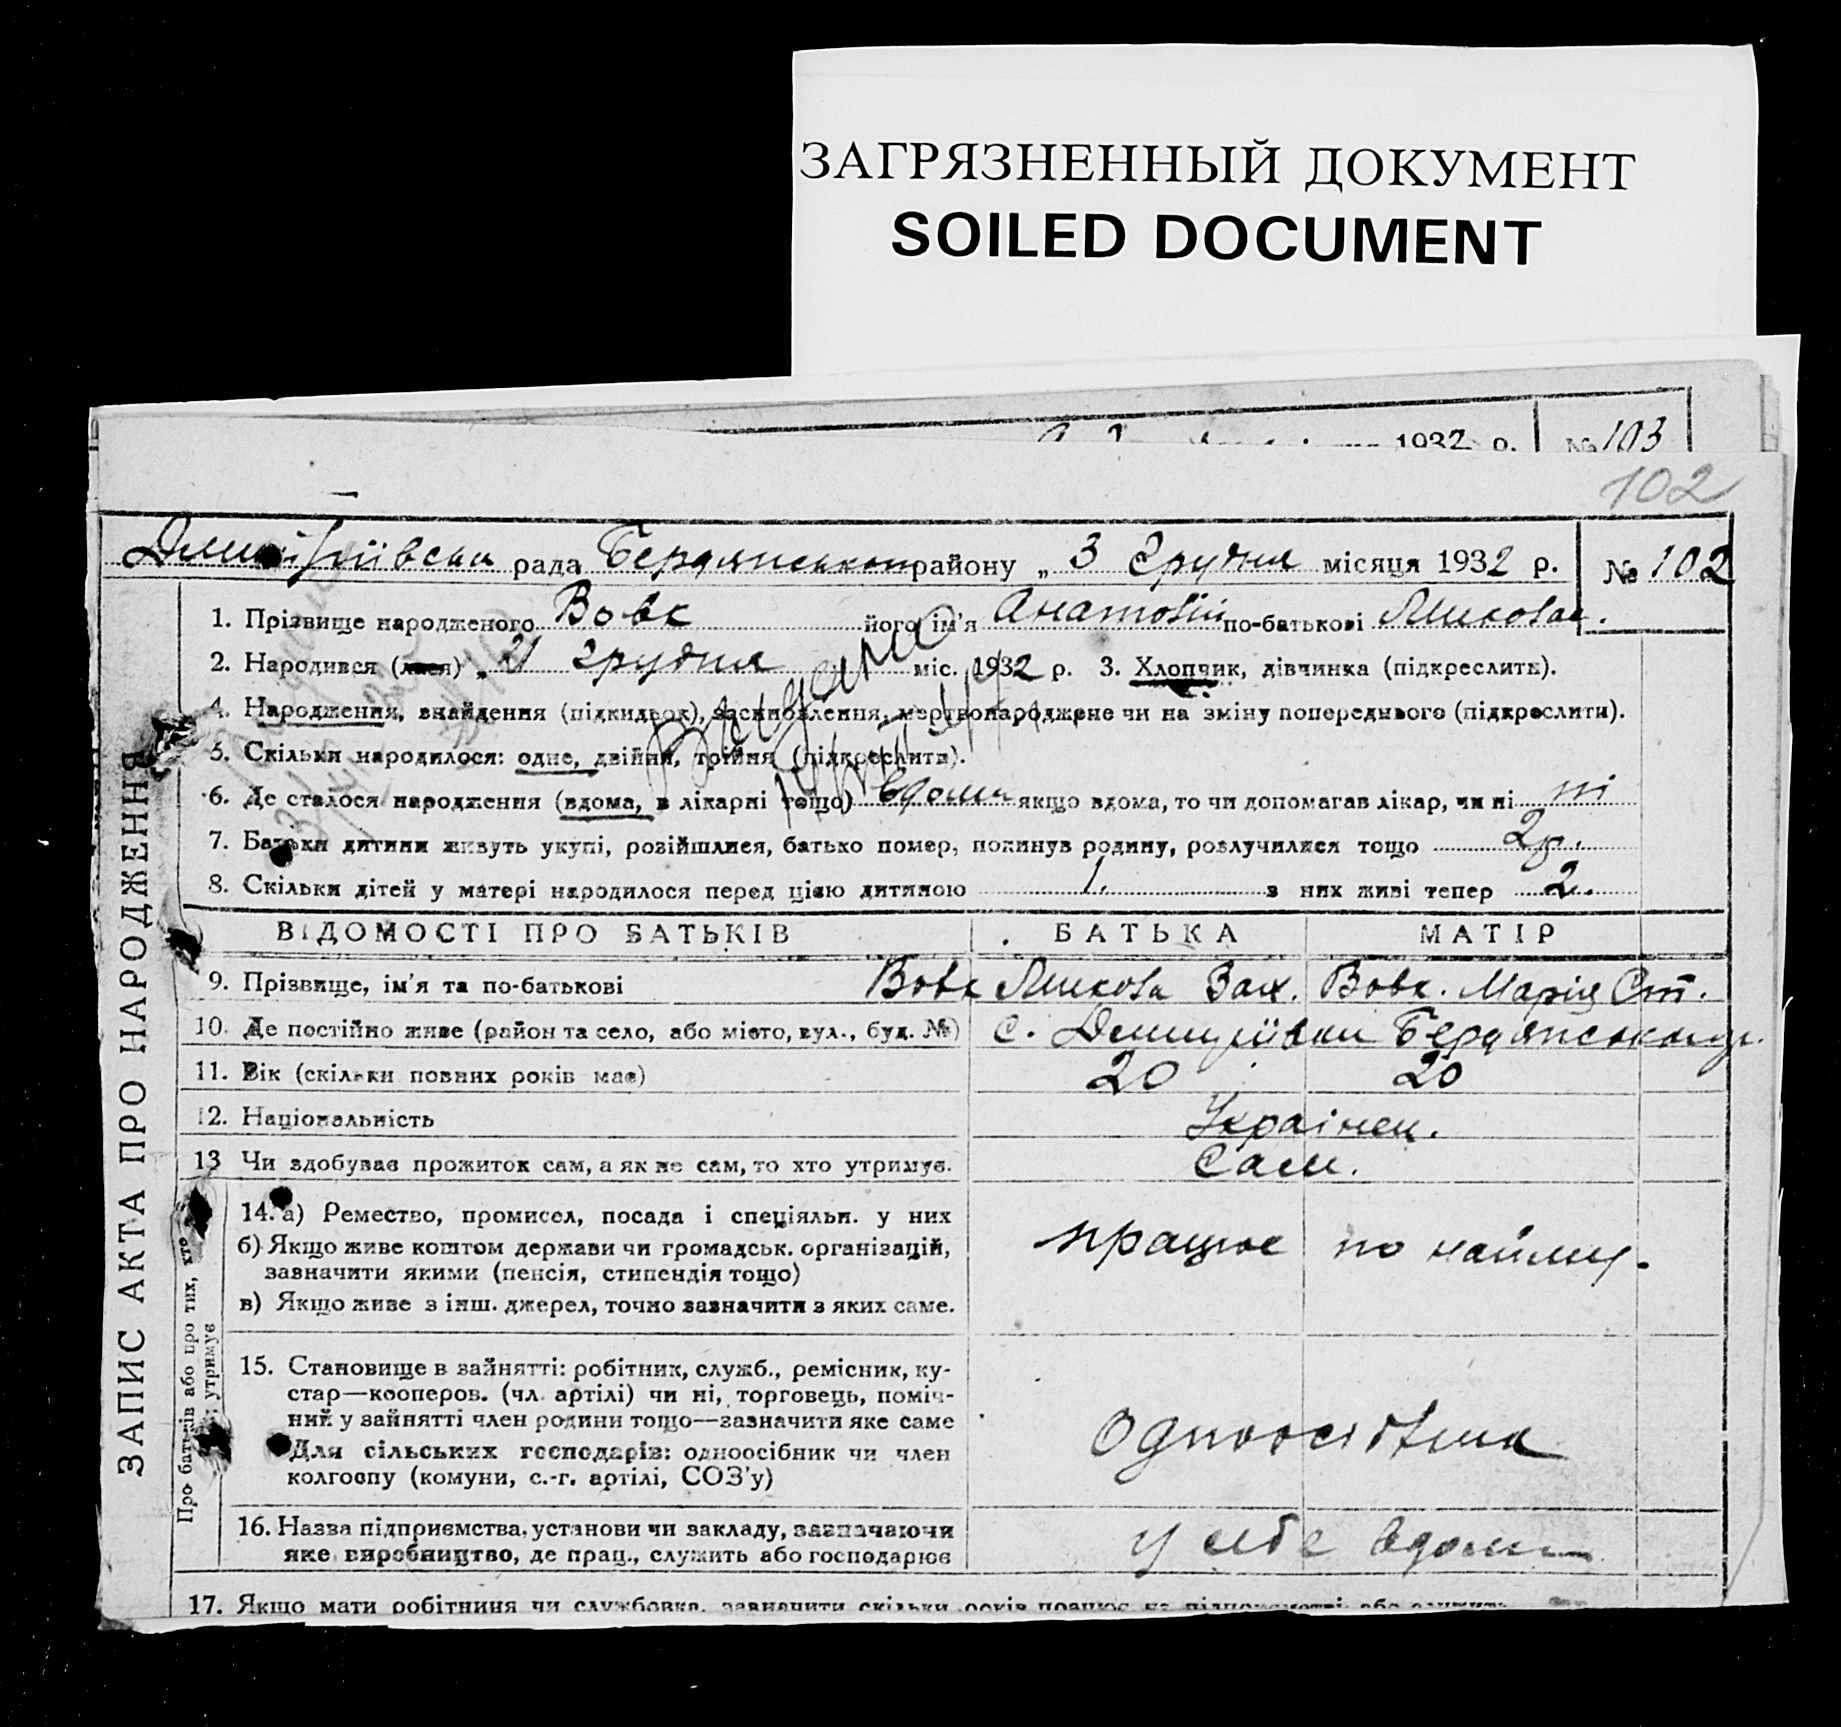 ЗАГРЯЗНЕННЫЙ ДОКУМЕНТ
SOILED DOCUMENT
1932 р. № 103
102
рада Бердянського району „ 3 Грудня місяця 1932 р. № 102
1. Прізвище народженого Вовк його ім'я Анатолій по-батькові Микола.
2. Народився (лася) „ 2 грудня міс. 1932 р. 3. Хлопчик, дівчинка (підкреслить).
4. Народження, знайдення (підкидьок), засиновлення, мертвонароджене чи на зміну попереднього (підкреслити).
5. Скільки народилося: одне, двійня, трійня (підкреслити).
Видано
6. Де сталося народження (вдома, в лікарні тощо) вдома якщо вдома, то чи допомагав лікар, чи ні ні
7. Батьки дитини живуть укупі, розійшлися, батько помер, покинув родину, розлучилися тощо
8. Скільки дітей у матері народилося перед цією дитиною 1. з них живі тепер 2.
ВІДОМОСТІ ПРО БАТЬКІВ БАТЬКА МАТІР
9. Прізвище, ім'я та по-батькові Вовк Микола Зах. Вовк. Марія Ст.
10. Де постійно живе (район та село, або місто, вул., буд. №) с.
11. Вік (скільки повних років має) 20 20
12. Національність Українец.
13 Чи здобуває прожиток сам, а як не сам, то хто утримує. Сам.
14. а) Ремество, промисел, посада і спеціяльн. у них
б) Якщо живе коштом держави чи громадськ. організацій,
зазначити якими (пенсія, стипендія тощо)
працює по найму.
в) Якщо живе з інш. джерел, точно зазначити з яких саме.
15. Становище в зайнятті: робітник, служб., ремісник, ку-
стар—кооперов. (чл. артілі) чи ні, торговець, поміч-
ний у зайнятті член родини тощо—зазначити яке саме
Для сільських господарів: одноосібник чи член
колгоспу (комуни, с.-г. артілі, СОЗ'у)
Одноосібник
16. Назва підприємства, установи чи закладу, зазначаючи
яке виробництво, де прац., служить або господарює
у себе вдома
17. Якщо мати робітниця чи службовка, зазначити скільки років працює на
ЗАПИС АКТА ПРО НАРОДЖЕННЯ
Про батьків або про тих, хто
утримує